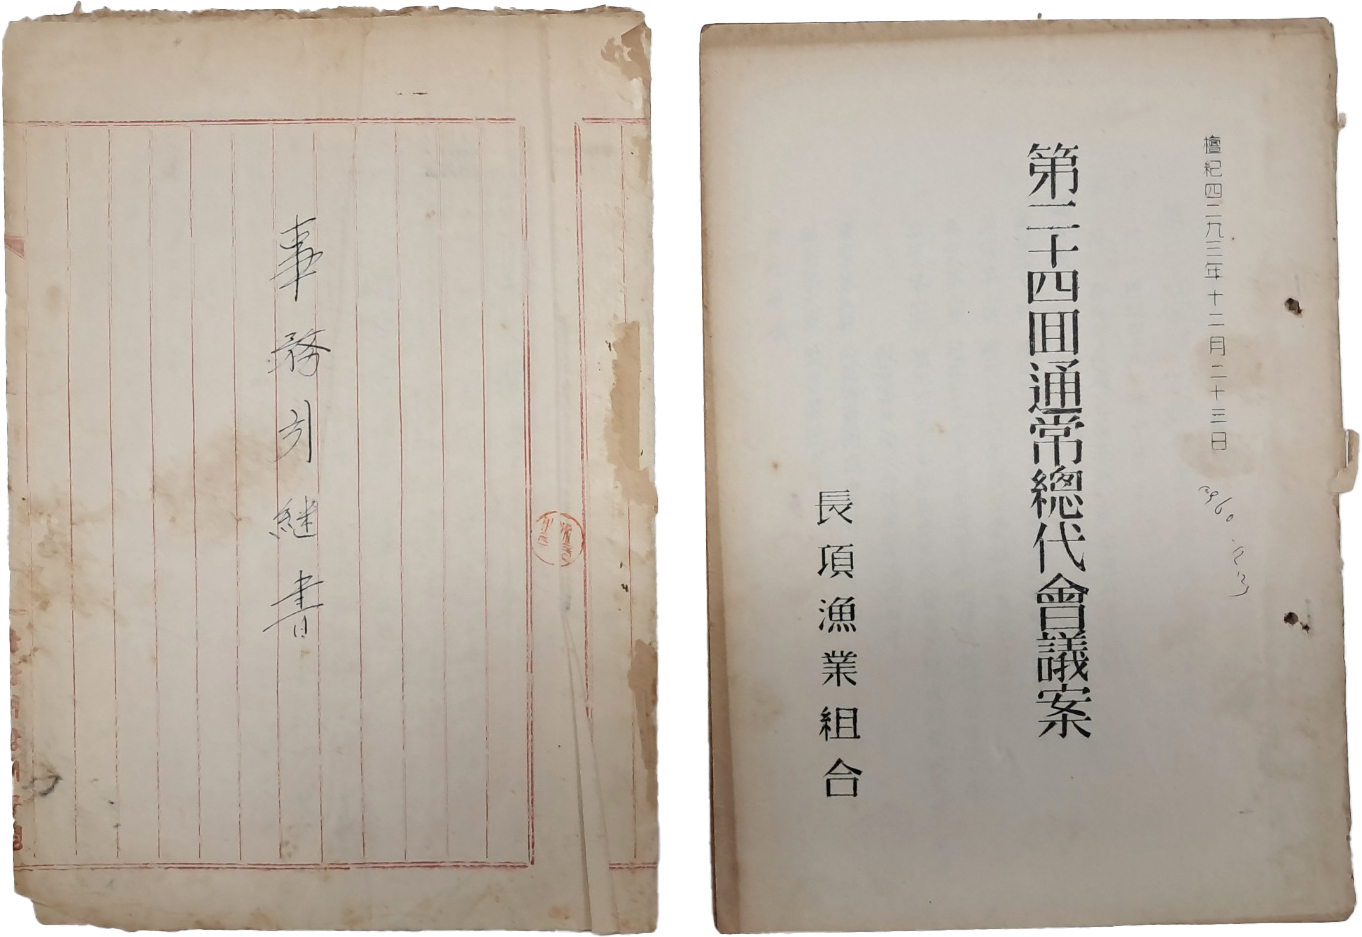 事務引継書
檀紀四二九三年十二月二十三日
第二十四回通常總代會議案
長項漁業組合